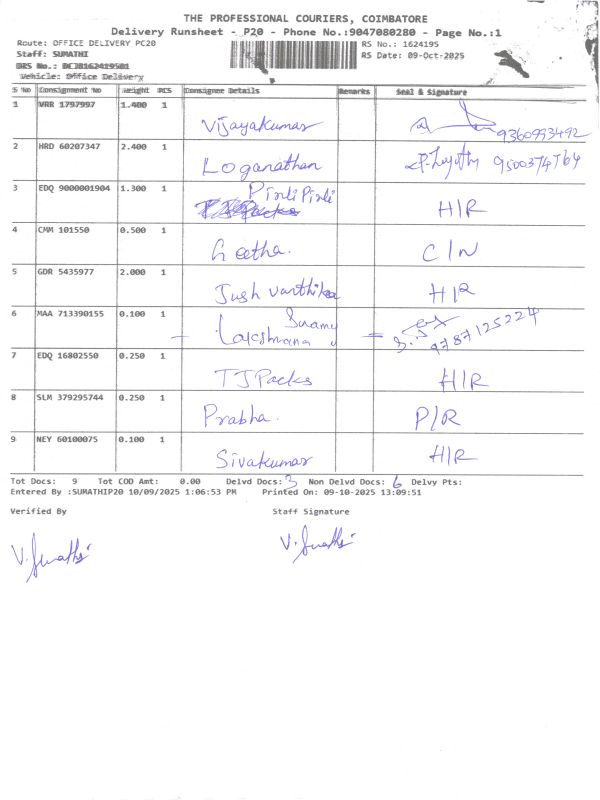 THE PROFESSIONAL COURIERS, COIMBATORE
Delivery Runsheet - P20 - Phone No.:9047080280 - Page No.:1
Route: OFFICE DELIVERY PC20 RS No.: 1624195
Staff: SUMATHI RS Date: 09-Oct-2025
DRS No.:
Vehicle: Office Delivery
S No Consignment No Weight PCS Consignee Details Remarks Seal & Signature
1 VRR 1797997 1.400 1 Vijayakumar 9360993492
2 HRD 60207347 2.400 1 Loganathan 9500374764
3 EDQ 9000001904 1.300 1 Pirli Pirli H/R
4 CMM 101550 0.500 1 Geetha. C/N
5 GDR 5435977 2.000 1 Jush Vanthika H/R
6 MAA 713390155 0.100 1 Swamy 9787125224
7 EDQ 16802550 0.250 1 TJ Packs H/R
8 SLM 379295744 0.250 1 Prabha. P/R
9 NEY 60100075 0.100 1 Sivakumar H/R
Tot Docs: 9 Tot COD Amt: 0.00 Delvd Docs: 3 Non Delvd Docs: 6 Delvy Pts:
Entered By :SUMATHIP20 10/09/2025 1:06:53 PM Printed On: 09-10-2025 13:09:51
Verified By Staff Signature
V. Sumathi V. Sumathi